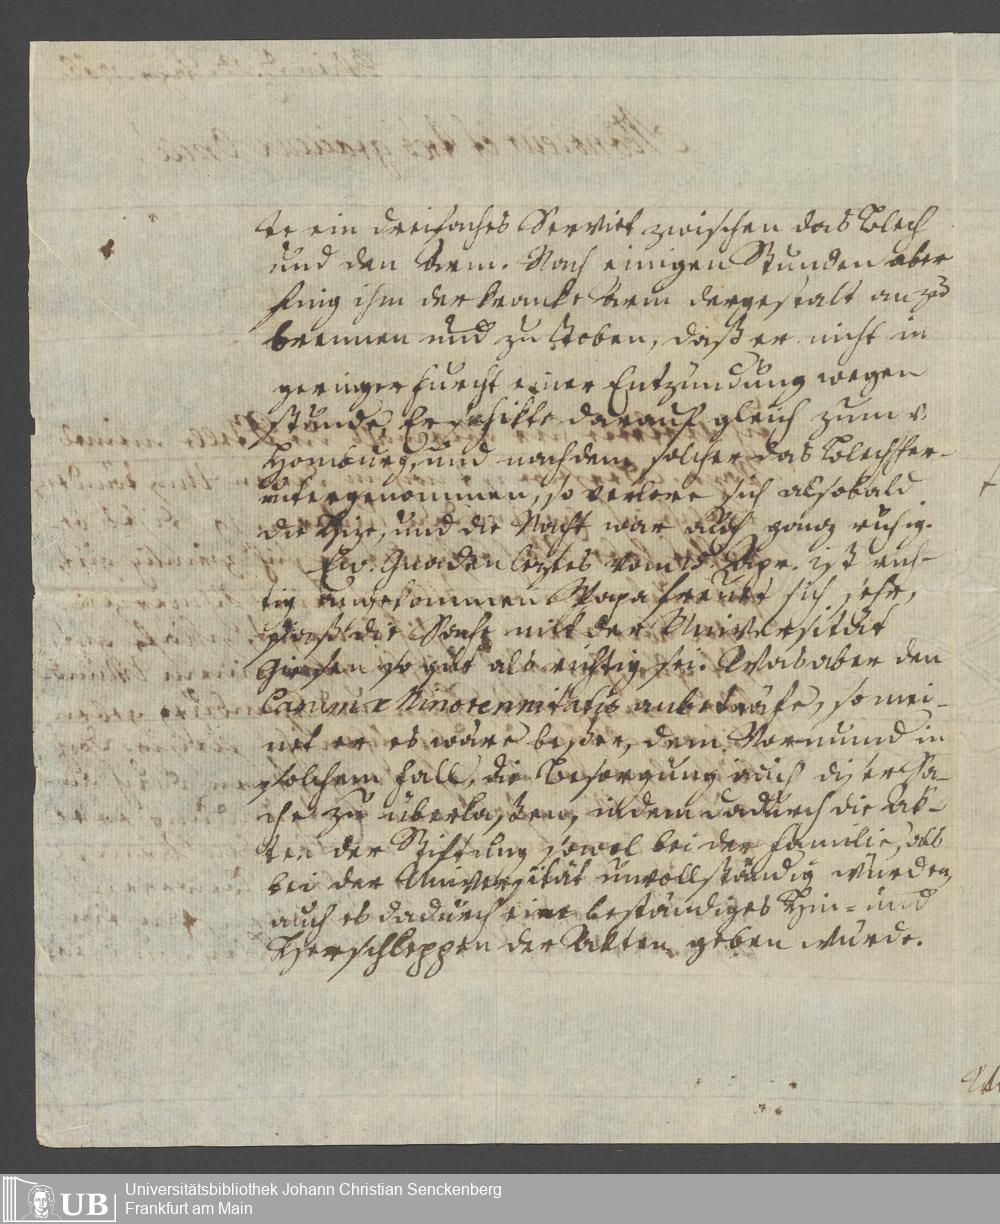 te ein dreifaches Serviet zwischen das Blech
und den Arm. Nach einigen Stunden aber
fing ihm der kranke Arm dergestalt an zu
brennen und zu toben, daß er nicht in
geringer Furcht einer Entzündung wegen
stunde. Er schikte darauf gleich zum v.
Homburg, und nachdem solcher das Blech her-
untergenommen, so verlore sich alsobald
die Hize, und die Nacht war auch ganz ruhig.
Ew. Gnaden leztes vom Apr. ist rich-
tig angekommen. Papa freuet sich sehr,
daß die Sache mit der Universität
Giesen so gut als richtig sei. Was aber den
Casum Minorennitatis anbeträfe, so mei-
net er es wäre beßer, dem Vormund in
solchem Fall, die Besorgung auch diser Sa-
che zu überlaßen, indem dadurch die Ak-
ten der Stiftung sowol bei der Familie, als
bei der Universität unvollständig würden,
auch es dadurch eine beständiges Hin- und
Herschleppen der Akten geben würde.
UB
Universitätsbibliothek Johann Christian Senckenberg
Frankfurt am Main